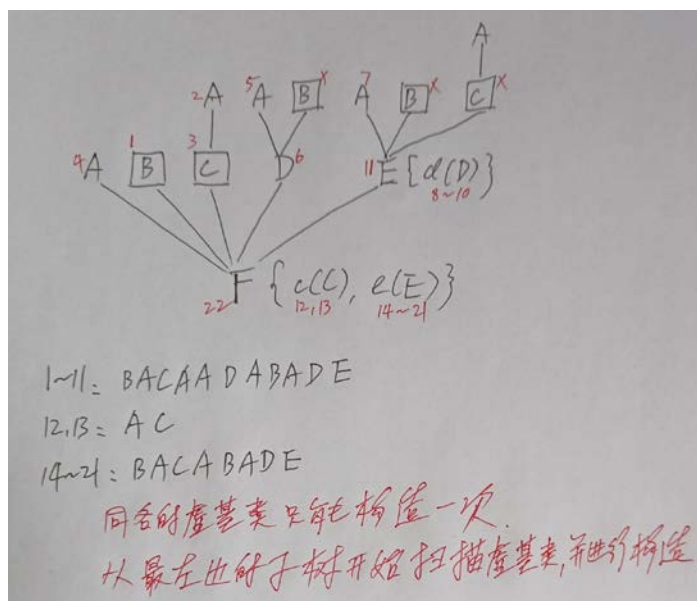 A
2A 5A B x 7A B x C x
4A 1 B 3 C D6 11E {d(D)}
8~10
22F {c(C), e(E)}
12,13 14~21
1~11: BACAADABADE
12,13: AC
14~21: BACABADE
同名的虚基类只能构造一次.
从最左边的子树开始扫描虚基类,并进行构造